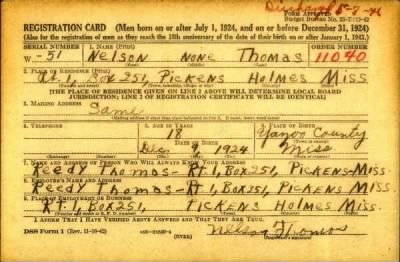 Discharged 5-7-46
FORM APPROVED
REGISTRATION CARD (Men born on or after July 1, 1924, and on or before December 31, 1924)
(Also for the registration of men as they reach the 18th anniversary of the date of their birth on or after January 1, 1943.)
SERIAL NUMBER 1. NAME (Print) ORDER NUMBER
W-51 Nelson None Thomas 11040
2. PLACE OF RESIDENCE (Print)
Rt. 1, Box 251, Pickens Holmes Miss.
[THE PLACE OF RESIDENCE GIVEN ON LINE 2 ABOVE WILL DETERMINE LOCAL BOARD
JURISDICTION; LINE 2 OF REGISTRATION CERTIFICATE WILL BE IDENTICAL]
3. MAILING ADDRESS
Same
4. TELEPHONE 5. AGE IN YEARS 6. PLACE OF BIRTH
18 Yazoo County
DATE OF BIRTH
Dec. 1924 Miss
7. NAME AND ADDRESS OF PERSON WHO WILL ALWAYS KNOW YOUR ADDRESS
Reedy Thomas-Rt. 1, Box 251, Pickens-Miss.
8. EMPLOYER'S NAME AND ADDRESS
Reedy Thomas-Rt. 1, Box 251, Pickens Miss
9. PLACE OF EMPLOYMENT OR BUSINESS
Rt. 1, Box 251, Pickens Holmes Miss.
I AFFIRM THAT I HAVE VERIFIED ABOVE ANSWERS AND THAT THEY ARE TRUE.
DSS Form 1 (Rev. 11-16-42) (OVER) Nelson Thomas